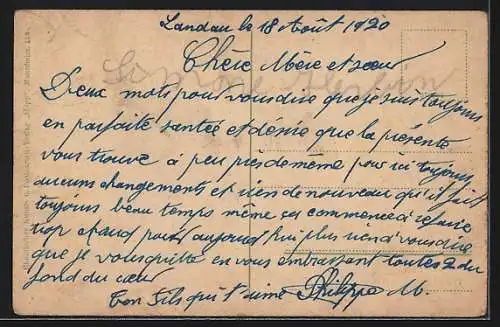 Landau le 18 Août 1920
Chère Mère et sœur
Deux mots pour vous dire que je suis toujours
en parfaite santée et désire que la présente
vous trouve à peu près de même pour ici toujours
aucuns changements et rien de nouveau qu'il fait
toujours beau temps même ça commence à refaire
trop chaud pour aujourd hui plus rien à vous dire
que je vous quitte en vous embrassant toutes 2 du
fond du cœur
Ton fils qui t'aime Philippe M.